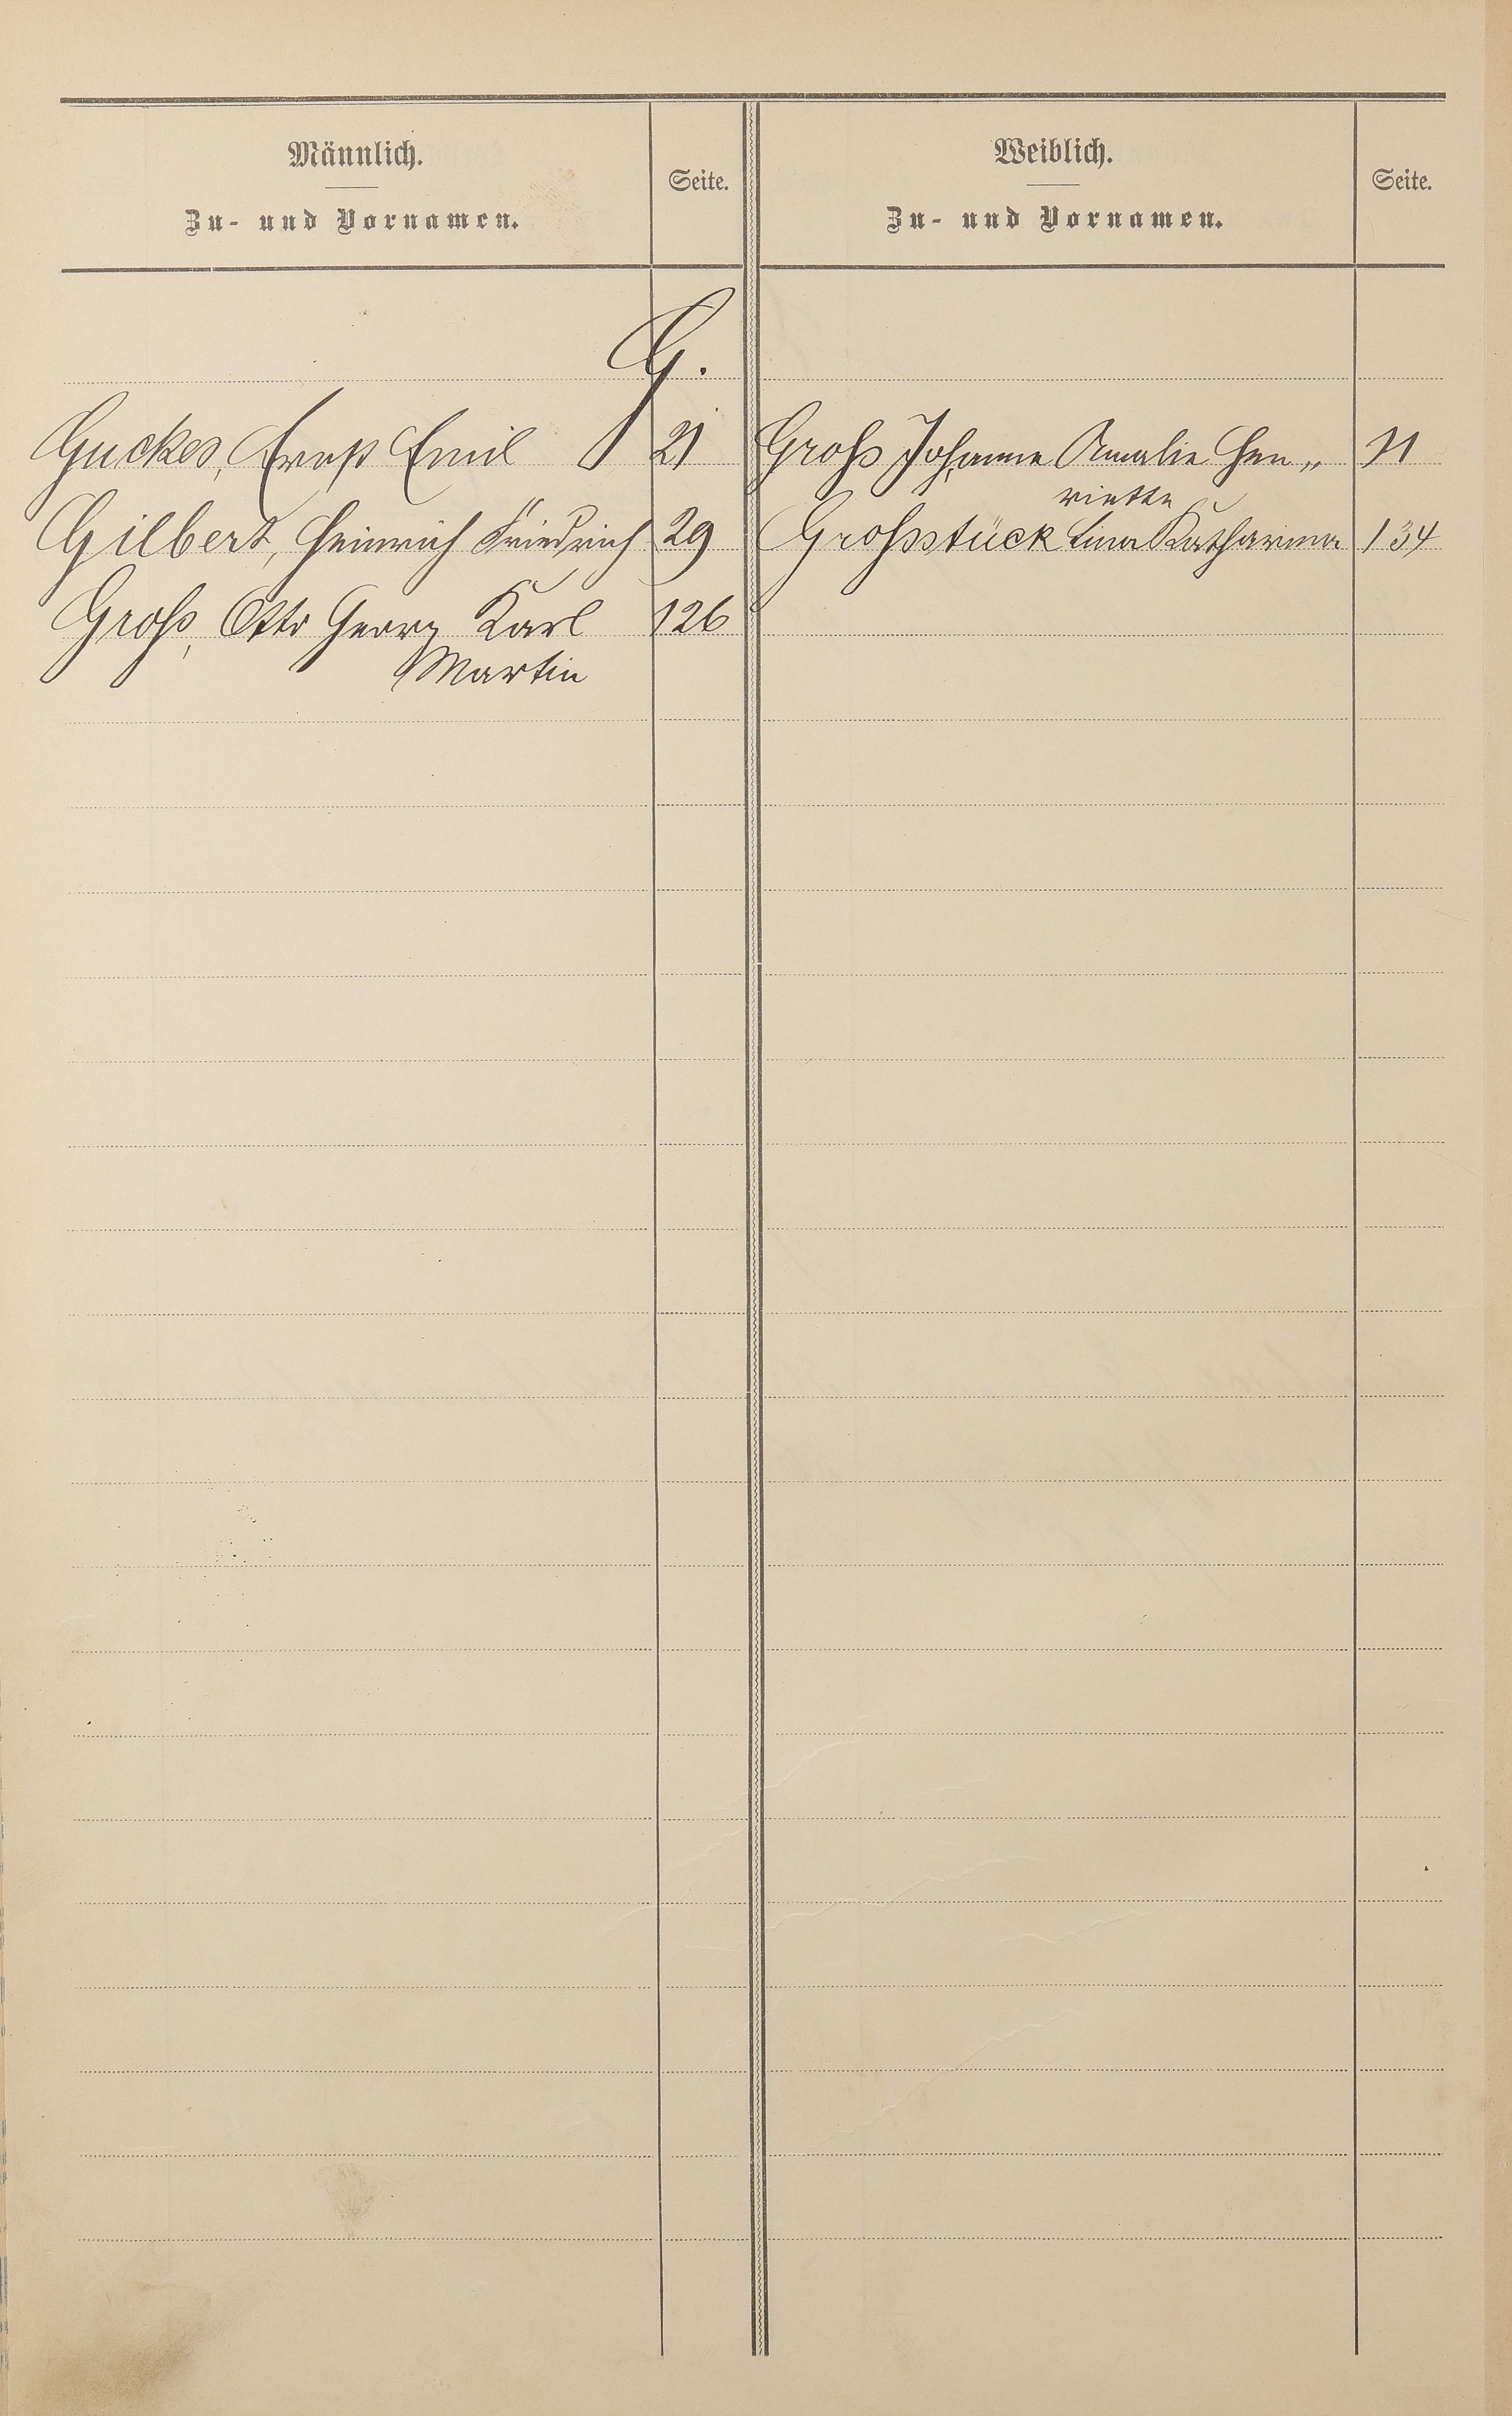 Männlich.
Zu- und Vornamen.
Seite.
Weiblich.
Zu- und Vornamen.
Seite.
G.
Guckes, Ernst Emil 21
Groß Johanne Amalie Hen„ 31
riette
Gilbert, Heinrich Friedrich 29
Großstück Lina Katharina 134
Groß, Otto Georg Karl 126
Martin